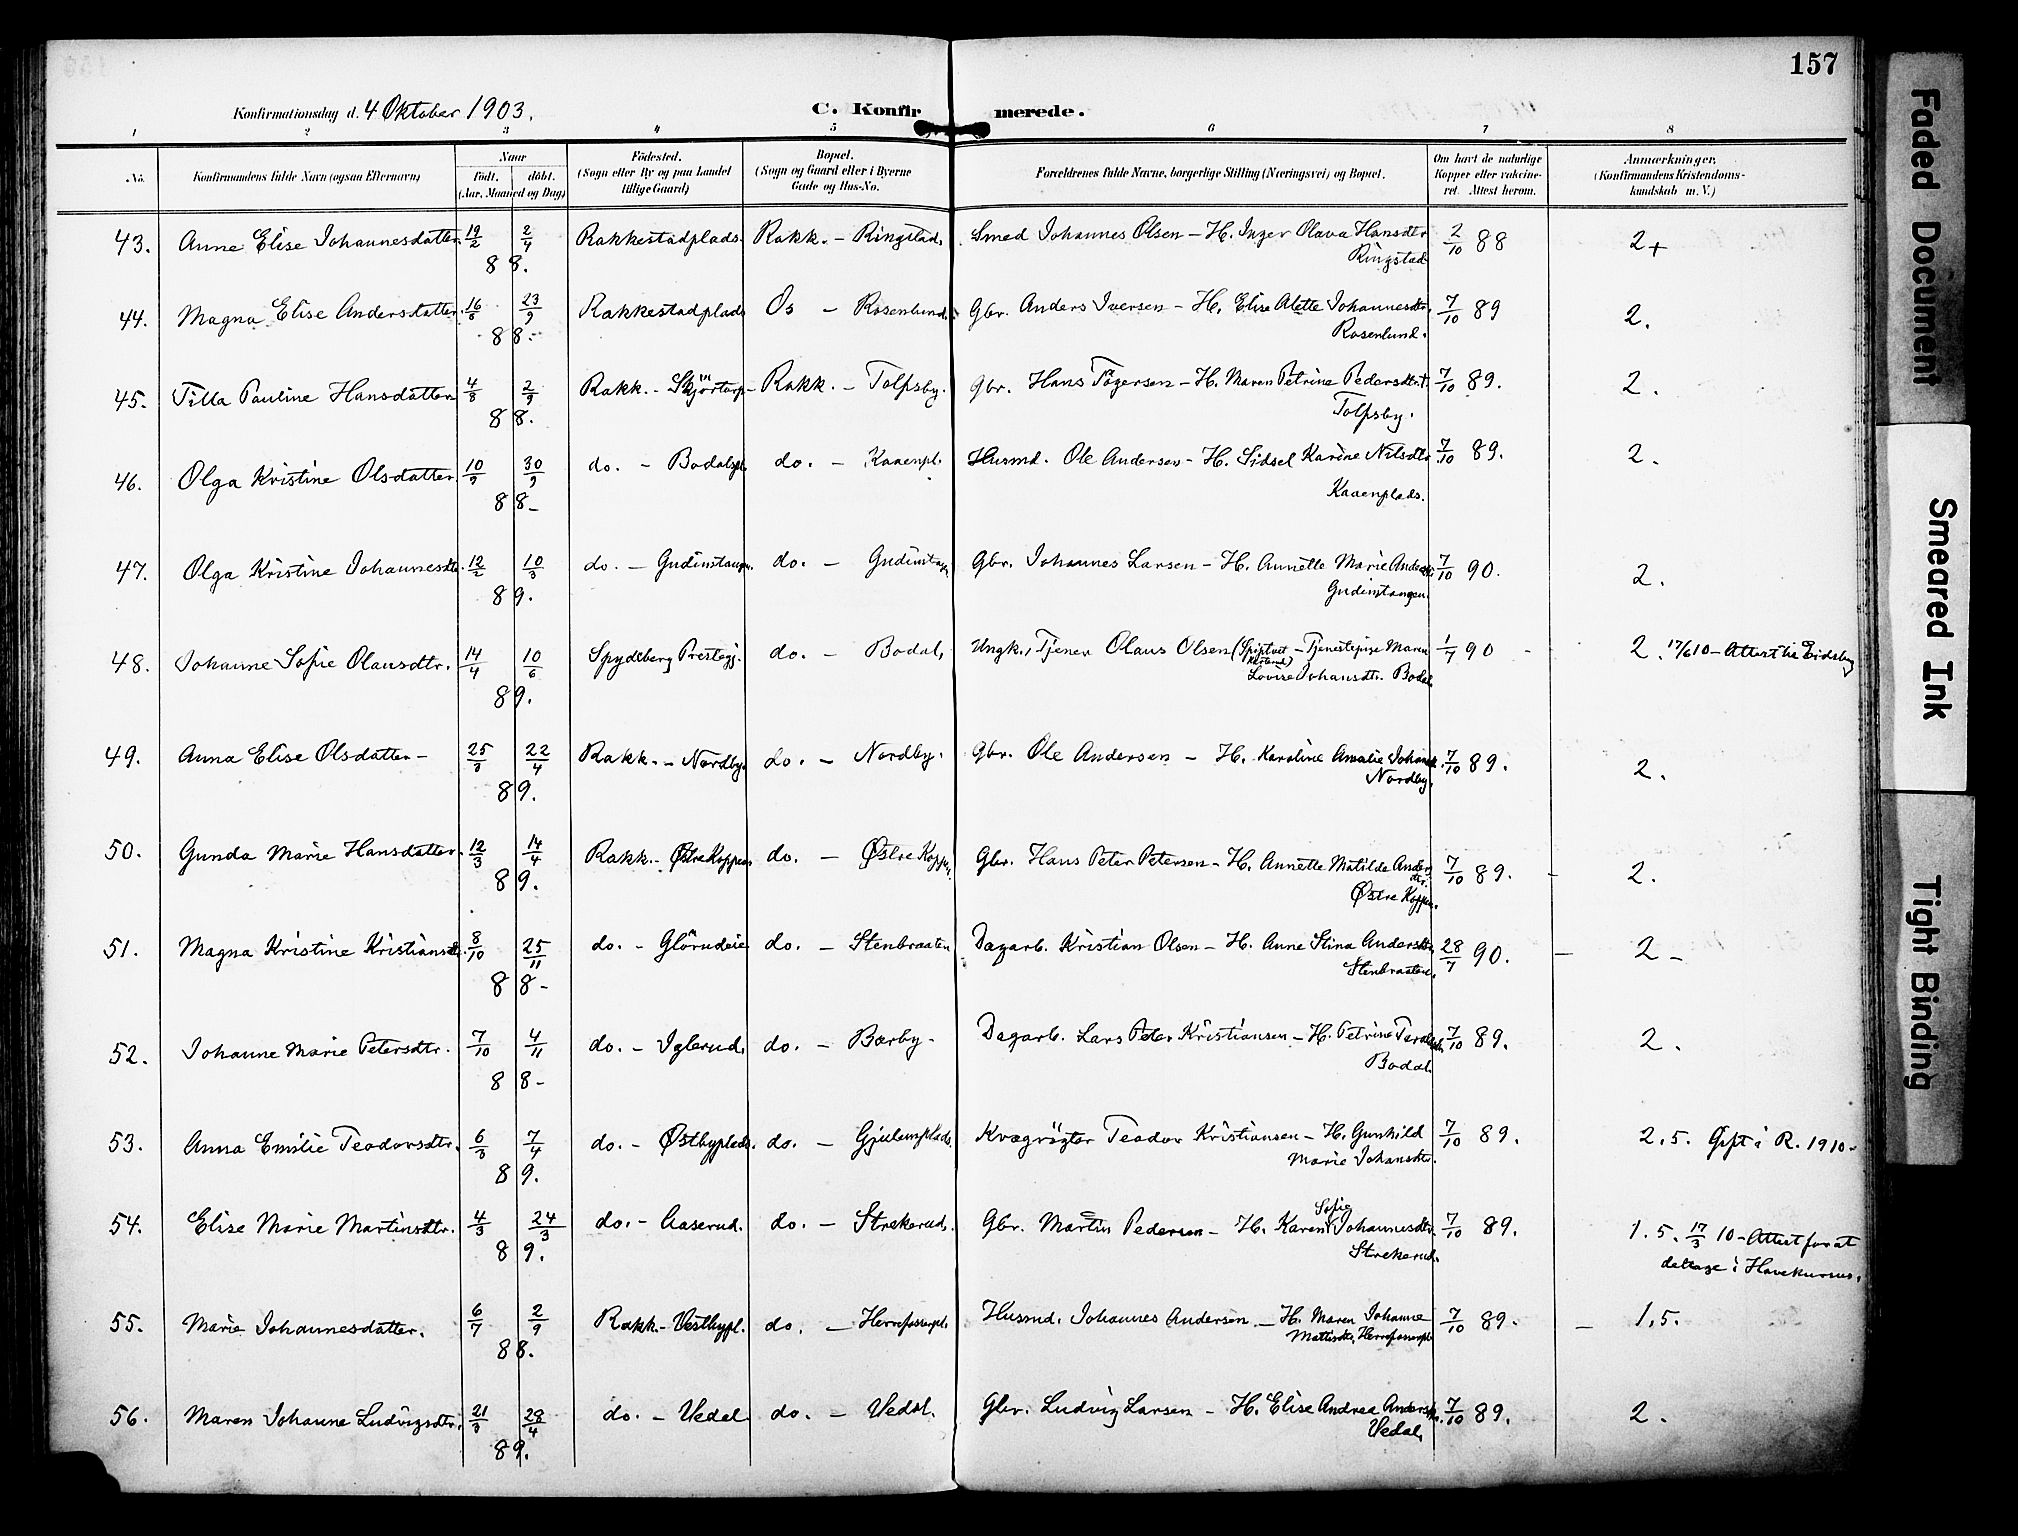 157
Konfirmationsdag d. 4 Oktober 1903. C. Konfirmerede.
1 2 3 4 5 6 7 8
No. Konfirmandens fulde Navn (ogsaa Efternavn) Naar födt. döbt. (Aar, Maaned og Dag) Födested. (Sogn eller By og paa Landet tillige Gaard) Bopæl. (Sogn og Gaard eller i Byerne Gade og Hus-No. Forældrenes fulde Navne, borgerlige Stilling (Næringsvei) og Bopæl. Om havt de naturlige Kopper eller vaccineret. Attest herom. Anmærkninger, (Konfirmandens Kristendomskundskab m. V.)
43. Anne Elise Johannesdatter. 19/2 2/4 Rakkestadplads. Rakk. - Ringstad. Smed Johannes Olsen - H. Inger Olava Hansdtr 2/10 88 2+
88. Ringstad
44. Magna Elise Andersdatter. 16/8 23/9 Rakkestadplads Os - Rosenlund. Gbr. Anders Iversen - H. Elise Alette Johannesdtr. 7/10 89 2.
88. Rosenlund.
45. Tilla Pauline Hansdatter 4/8 2/9 Rakk. - Skjörtorp - Rakk. - Tolpsby. Gbr. Hans Tögersen - H. Maren Petrine Pedersdtr. 7/10 89. 2.
88. Tolpsby.
46. Olga Kristine Olsdatter 10/9 30/9 do. - Bodalspl. do. - Kaaenpl. Husmd. Ole Andersen - H. Sidsel Karine Nilsdtr 7/10 89. 2.
88 - Kaaenplads.
47. Olga Kristine Johannesdtr. 12/2 10/3 do. - Gudimtangen. do. - Gudimtangen Gbr. Johannes Larsen - H. Annette Marie Andersdtr 7/10 90. 2.
89. Gudimtangen.
48. Johanne Sofie Olausdtr. 14/4 10/6 Spydeberg Prestegj. do. - Bodal. Ungk., Tjener Olaus Olsen ( - Tjenestepige Maren 1/7 90 - 2. 17/6 10 - Attest til Eidsberg
89. Lovise Johansdtr. Bodal.
49. Anna Elise Olsdatter - 25/3 22/4 Rakk. - Nordby. do. - Nordby. Gbr. Ole Andersen - H. Karoline Amalie 7/10 89. 2.
89. Nordby.
50. Gunda Marie Hansdatter. 12/3 14/4 Rakk. - Østre Koppen. do. - Østre Koppen. Gbr. Hans Peter Petersen - H. Annette Matilde Andersdtr. 7/10 89. - 2.
89. Østre Koppen.
51. Magna Kristine Kristiansdtr. 8/10 25/11 do. - Glörudeie do. - Stenbraaten Dagarb. Kristian Olsen - H. Anne Stina Andersdtr. 28/7 90. - 2 -
88 - Stenbraaten.
52. Johanne Marie Petersdtr. 7/10 4/11 do. - Iglerud. do. - Bærby - Dagarb. Lars Peter Kristiansen - H. Petrine 7/10 89. 2.
88 - Bodal.
53. Anna Emilie Teodorsdtr. 6/3 7/4 do. - Østbyplads. do. - Gjulemplads. Kvægrögter Teodor Kristiansen - H. Gunhild 7/10 89. 2,5. Gift i R. 1910 -
89. Marie Johansdtr.
54. Elise Marie Martinsdtr. 4/3 24/3 do. - Aaserud. do. - Strekerud. Gbr. Martin Pedersen - H. Karen Sofie Johannesdtr. 7/10 89. 1.5. 17/3 10 - Attest for at
89. Strekerud. deltage i Havekursus.
55. Marie Johannesdatter. 6/7 2/9 Rakk. - Vestbypl. do. - Husmd. Johannes Andersen - H. Maren Johanne 7/10 89. - 1,5.
88.
56. Maren Johanne Ludvigsdtr. 21/3 28/4 do. - Vedal do. - Vedal. Gbr. Ludvig Larsen - H. Elise Andrea Andersdtr. 7/10 89. 2.
89. Vedal.
Faded Document
Smeared Ink
Tight Binding